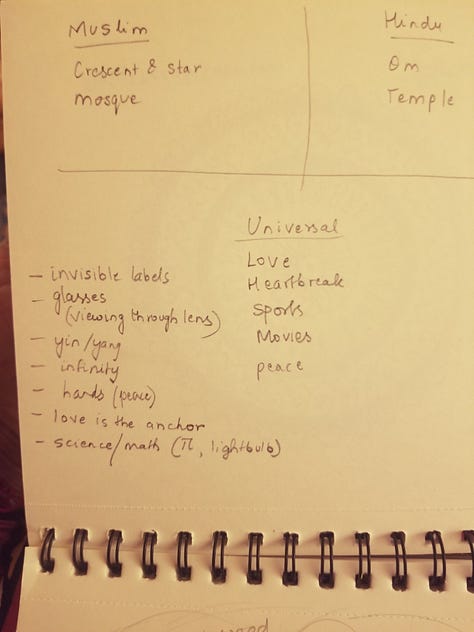 Muslim
Crescent & star
mosque
Hindu
Om
Temple
Universal
Love
Heartbreak
Sports
Movies
peace
– invisible labels
– glasses
(viewing through lens)
– yin/yang
– infinity
– hands (peace)
– love is the anchor
– science/math (π, lightbulb)